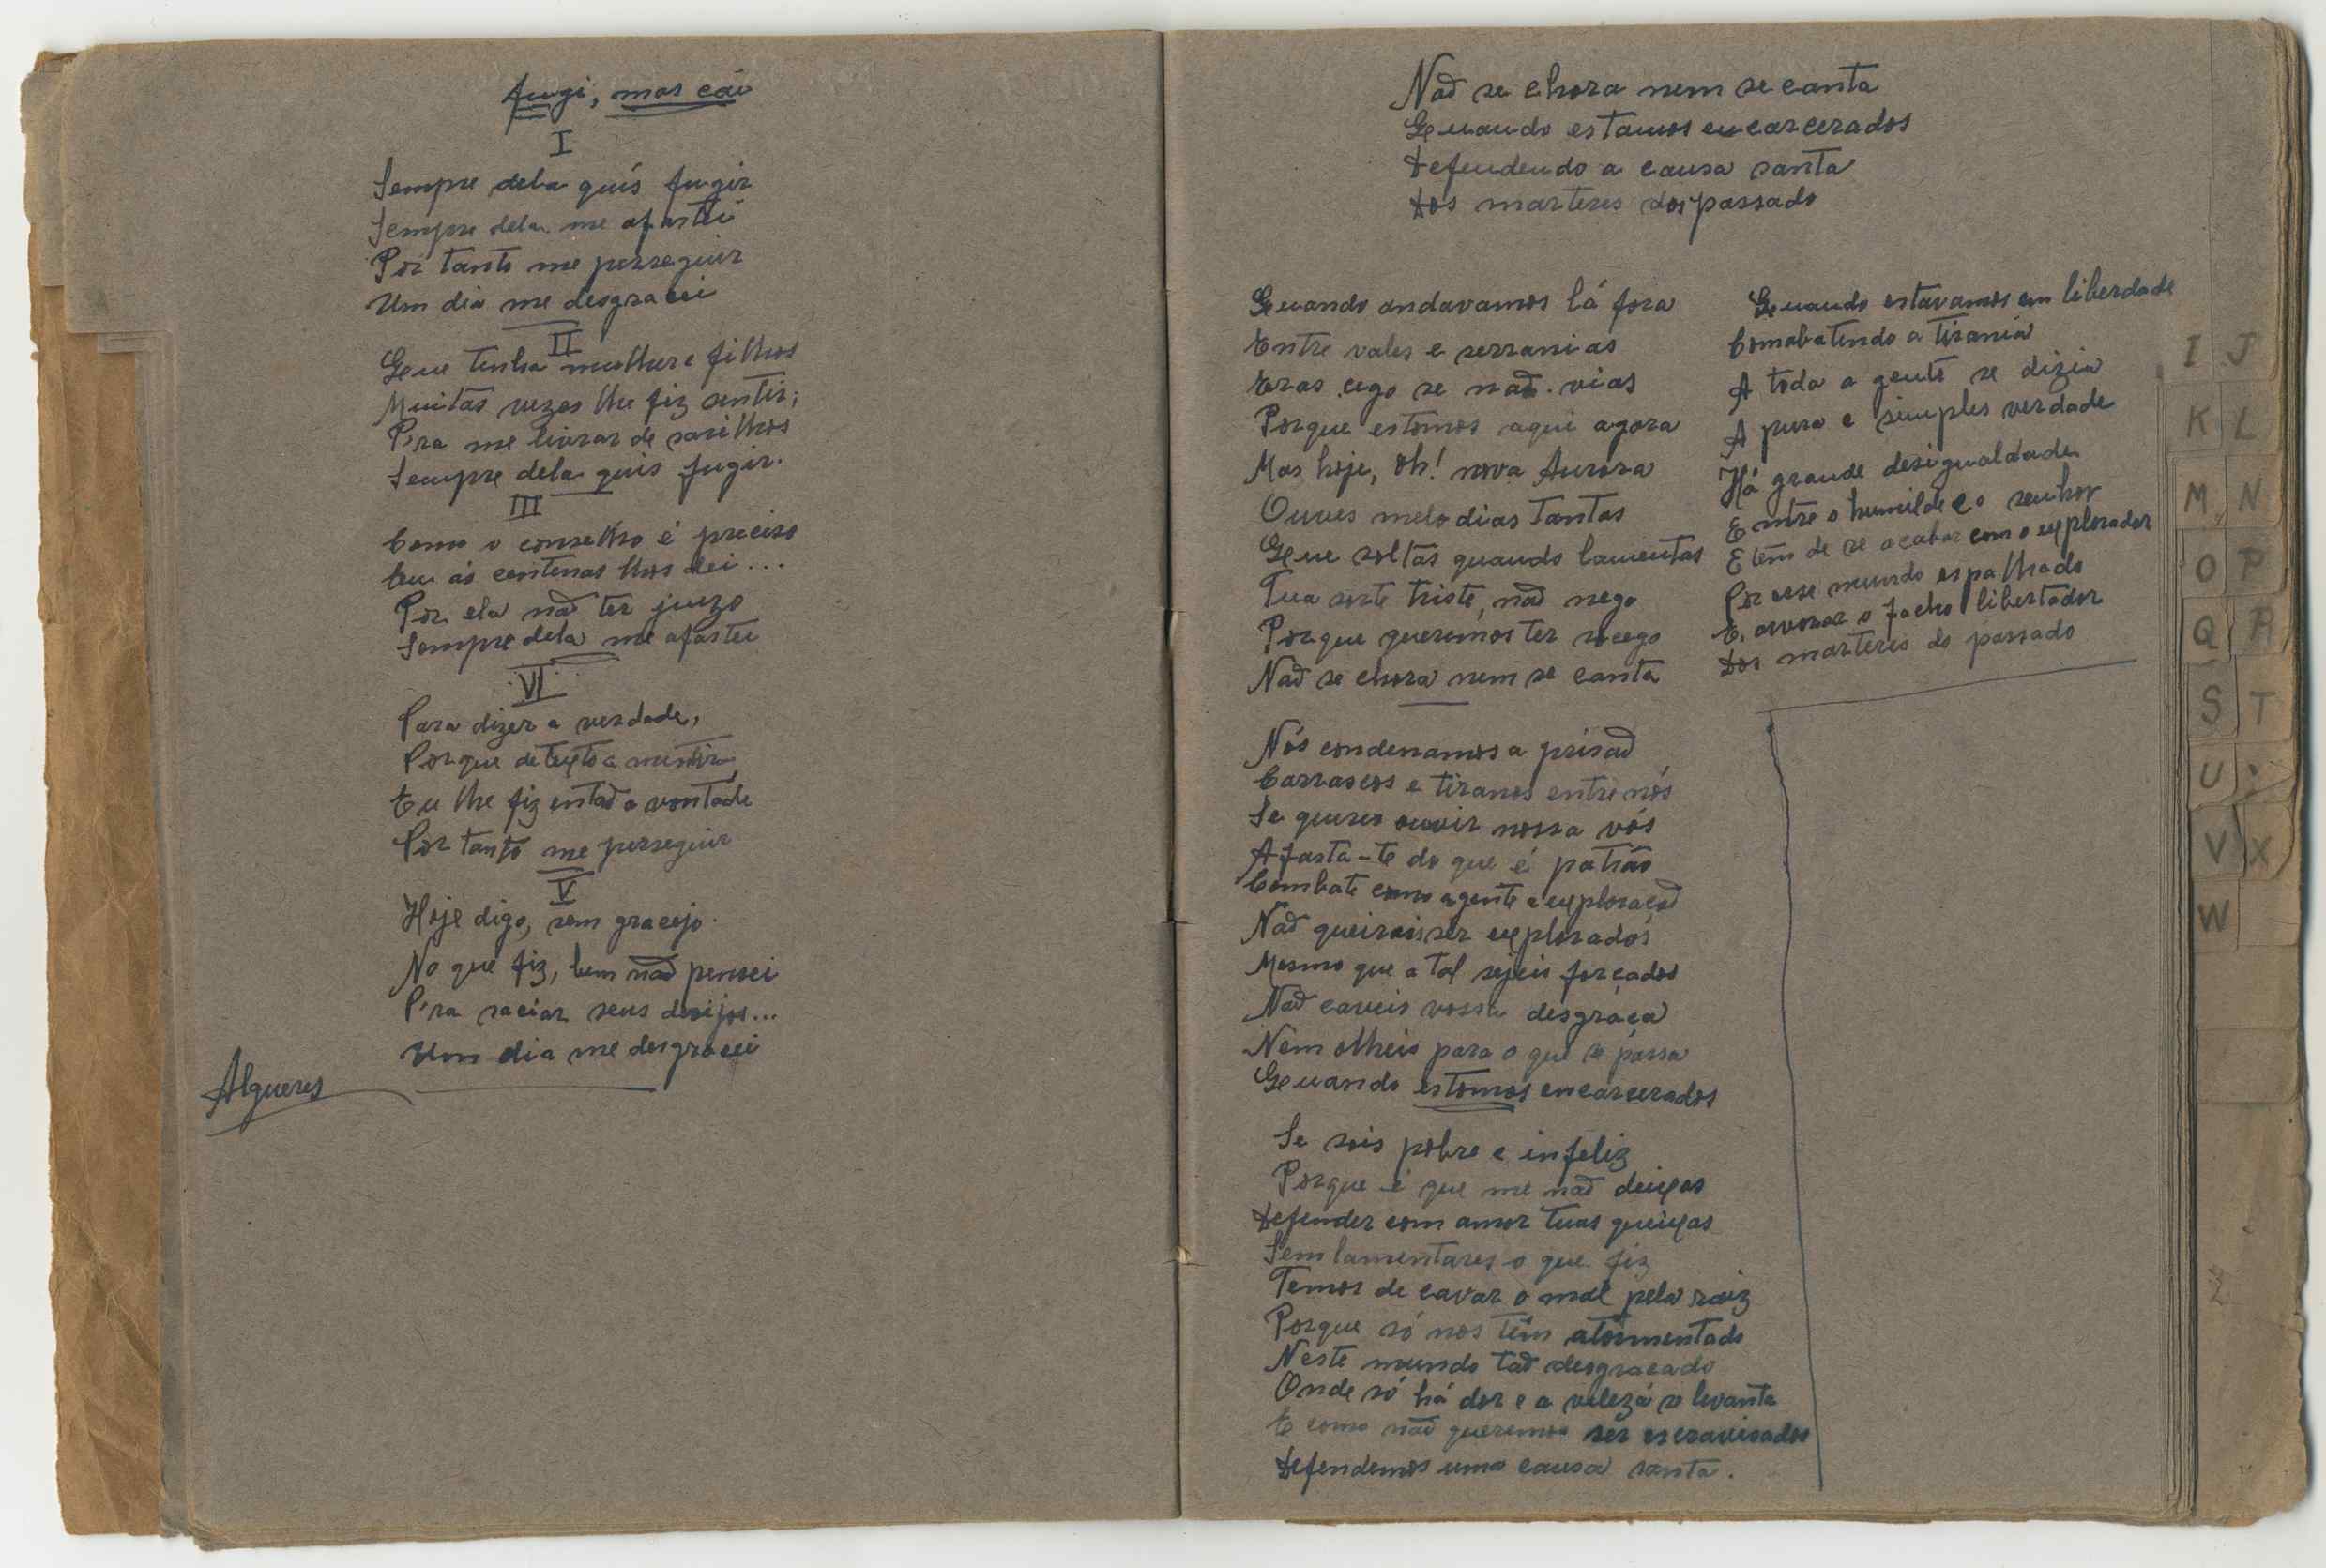 Fugi, mas cái
I
Sempre dela quís fugir
Sempre dela me afastei
Por tanto me perseguir
Um dia me desgracei
II
Que tenha mulher e filhos
Muitas vezes lhe fiz sentir;
P'ra me livrar de sarilhos
Sempre dela quis fugir.
III
Como o conselho é preciso
Eu ás centenas lhos dei...
Por ela não ter juizo
Sempre dela me afastei
VI
Para dizer a verdade,
Porque detexto a mentira
Eu lhe fiz entaõ a vontade
Por tanto me perseguir
V
Hoje digo, sem gracejo.
No que fiz, bem naõ pensei
P'ra saciar seus desijos...
Um dia me desgracei
Algueres
Naõ se chora nem se canta
Quando estamos encarcerados
Defendendo a causa santa
Dos marteres dos passado
Quando andavamos lá fora
Entre vales e serranias
Eras cego se naõ vias
Porque estamos aqui agora
Mas hoje, oh! nova Aurora
Ouves melodias tantas
Que soltas quando lamentas
Tua sorte triste, naõ nego
Porque queremos ter socego
Naõ se chora nem se canta
Quando estavamos em liberdade
Comobatendo a tirania
A toda a gente se dizia
A pura e simples verdade
Há grande desigualdade
Entre o humilde e o senhor
E têm de se acabar com o explorador
Por esse mundo espalhado
E. arvorar o facho libertador
Dos marteres do passado
Nós condenamos a prisaõ
Carrascos e tiranos entre nós
Se queres ouvir nossa vós
Afasta-te do que é patrão
Combate como agente a exploraçaõ
Naõ queirais ser explorados
Mesmo que a tal sejeis forçados
Naõ caveis vossa desgraça
Nem olheis para o que se passa
Quando estamos encarcerados
Se sois pobre e infeliz
Porque é que me naõ deixas
Defender com amor tuas queixas
Sem lamentares o que fiz
Temos de cavar o mal pela raiz
Porque só nos têm atormentado
Neste mundo taõ desgraçado
Onde só há dor e a vileza se levanta
E como naõ queremos sêr escravisados
Defendemos uma causa santa.
I J
K L
M N
O P
Q R
S T
U
V X
W
Z